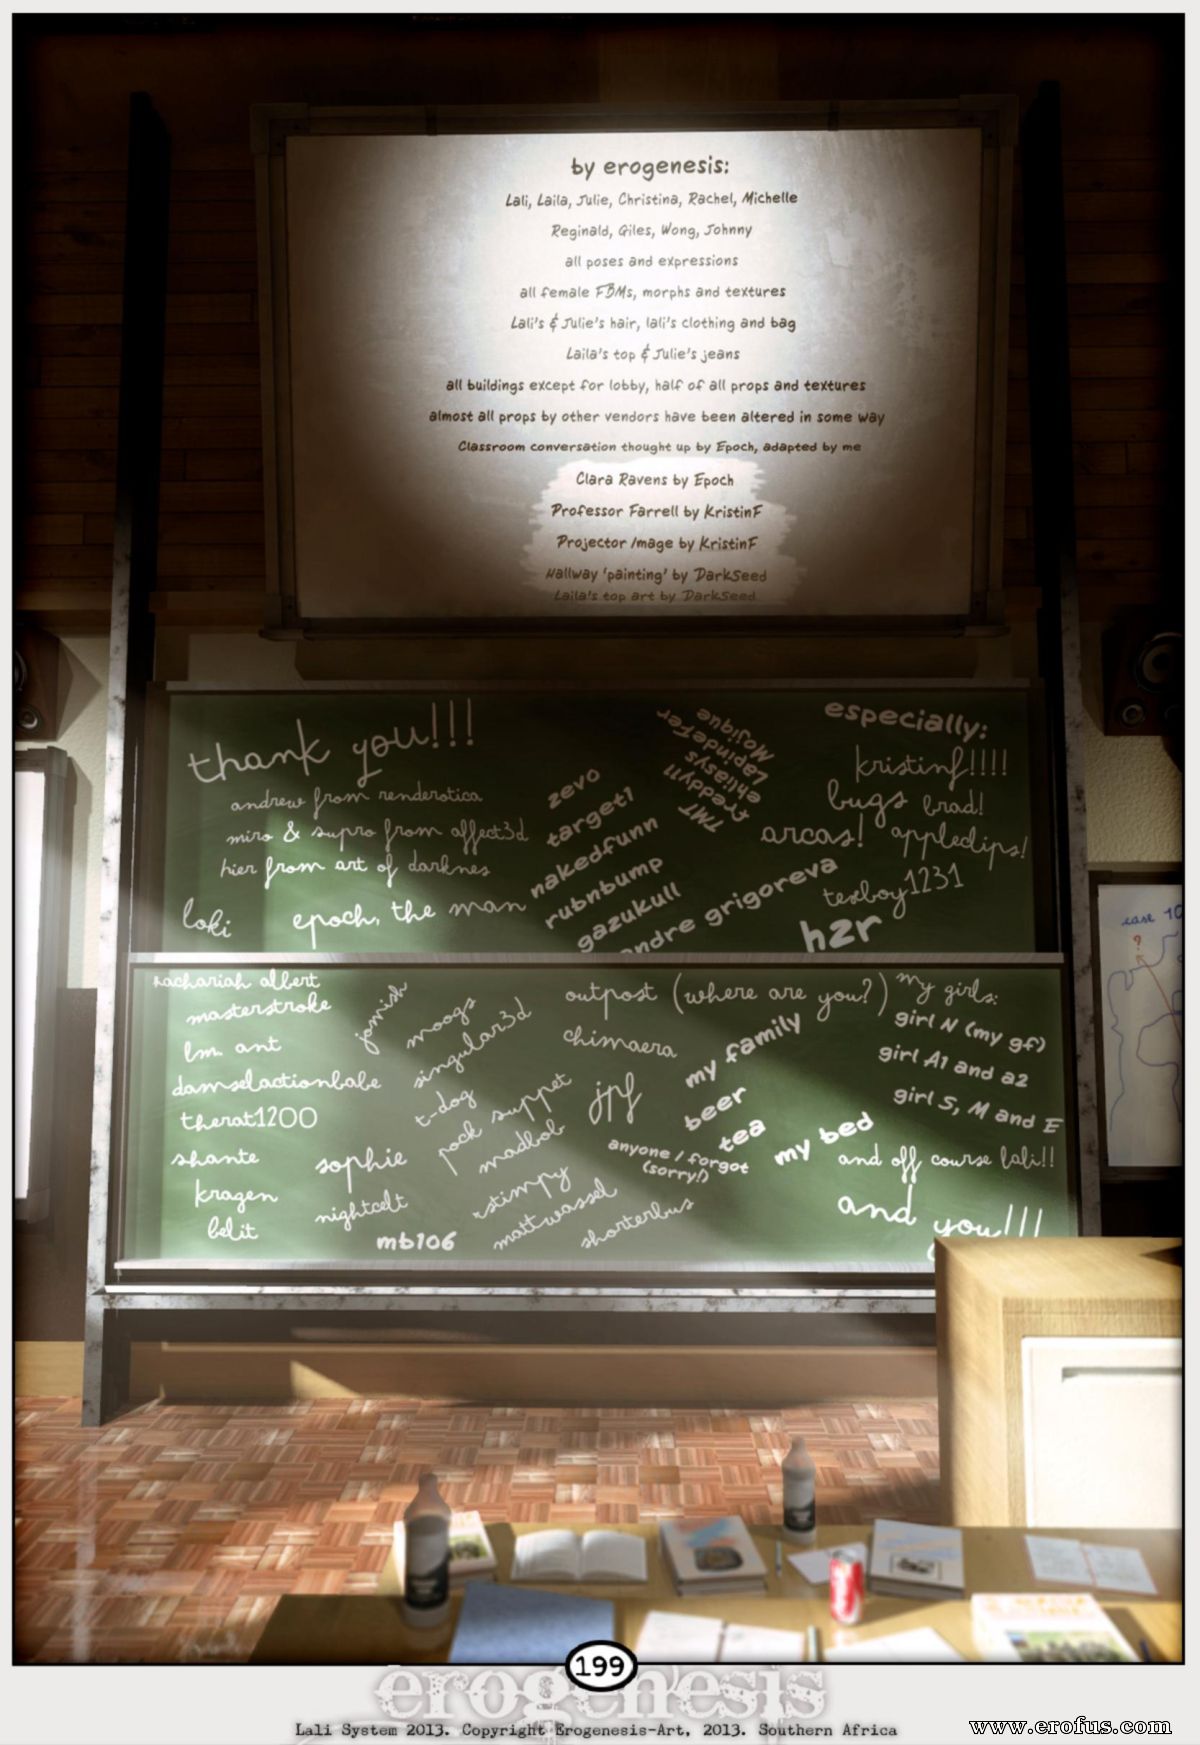 by erogenesis:
Lali, Laila, Julie, Christina, Rachel, Michelle
Reginald, Giles, Wong, Johnny
all poses and expressions
all female FBMs, morphs and textures
Lali's & Julie's hair, lali's clothing and bag
Laila's top & Julie's jeans
all buildings except for lobby, half of all props and textures
almost all props by other vendors have been altered in some way
Classroom conversation thought up by Epoch, adapted by me
Clara Ravens by Epoch
Professor Farrell by KristinF
Projector Image by KristinF
Hallway 'painting' by DarkSeed
Laila's top art by DarkSeed
thank you!!!
andrew from renderotica
miro & supro from affect3d
hier from art of darknes
loki
epoch, the man
zevo
target1
nakedfunn
rubnbump
gazukull
andre grigoreva
TMT
freddy11
ehliasys
Lapindefer
Mojique
especially:
kristinf!!!!
bugs
brad!
arcas!
appleclips!
texboy1231
hzr
zachariah albert
masterstroke
lm. ant
damselactionbabe
therat1200
shante
kragen
belit
jamish
moogs
singular3d
t-dog
pock suppet
madbob
sophie
nightcelt
mb106
stimpy
mattwassel
shorterbus
outpost (where are you?)
chimaera
jpf
my family
beer
tea
my bed
anyone I forgot
(sorry!)
my girls:
girl N (my gf)
girl A1 and a2
girl S, M and E
and off course lali!!
and you!!!
case 10
?
199
erogenesis
Lali System 2013. Copyright Erogenesis-Art, 2013. Southern Africa
www.erofus.com